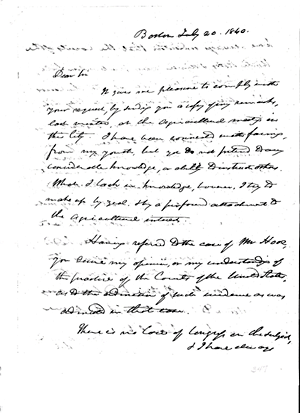 Boston July 20. 1840.
Dear Sir
It gives me pleasure to comply with
your request, by sending you a copy of my remarks,
last winter, at the Agricultural meeting in
this City. I have been connected with farming
from my youth, but yet do not pretend to any
considerable knowledge, or ability to instruct others.
What I lack in knowledge, however, I try to
make up by zeal, & by a profound attachment to
the Agricultural interest.
Having referred to the case of Mr Hooe,
you desire my opinion, or my understanding of
the practice of the Courts of the United States,
as to the admission of such evidence as was
admitted in that case.
There is no law of Congress on the subject,
I have always